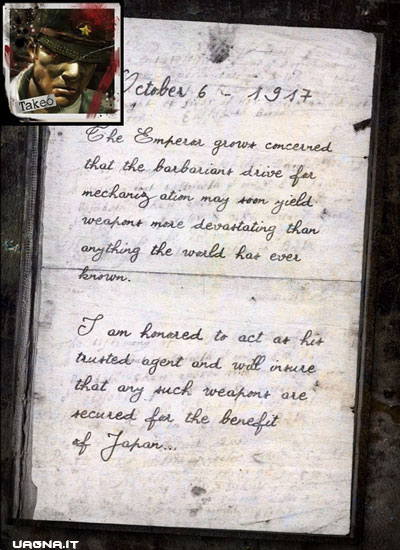 Takeo
October 6 - 1917
The Emperor grows concerned
that the barbarians drive for
mechaniz ation may soon yield
weapons more devastating than
anything the world has ever
known.
I am honored to act as his
trusted agent and will insure
that any such weapons are
secured for the benefit
of Japan...
UAGNA.IT